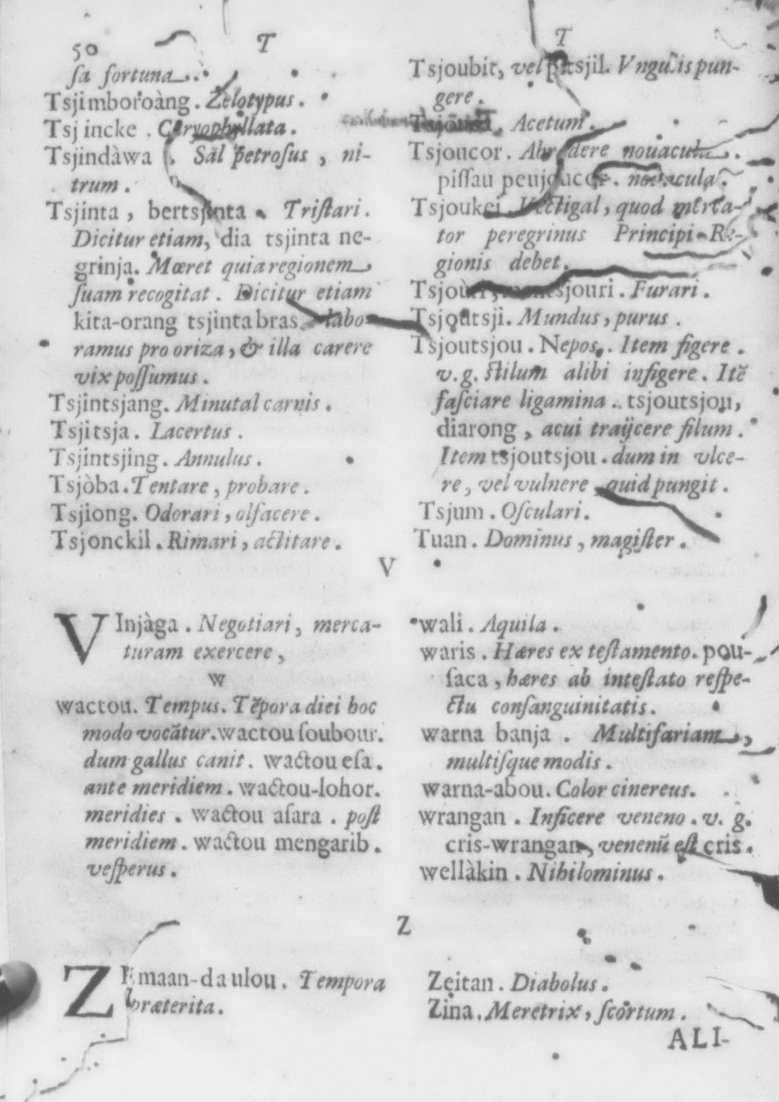 50
T
ſa fortuna.
Tsjimboroàng. Zelotypus.
Tsjincke. Caryophyllata.
Tsjindàwa. Sal petroſus, ni-
trum.
Tsjinta, bertsjinta. Triſtari.
Dicitur etiam, dia tsjinta ne-
grinja. Mæret quia regionem
ſuam recogitat. Dicitur etiam
kita-orang tsjinta bras, labo-
ramus pro oriza, & illa carere
vix poſſumus.
Tsjintsjang. Minutal carnis.
Tsjitsja. Lacertus.
Tsjintsjing. Annulus.
Tsjòba. Tentare, probare.
Tsjiong. Odorari, olfacere.
Tsjonckil. Rimari, actitare.
T
Tsjoubit, vel pitsjil. Vnguis pun-
gere.
Acetum.
Tsjoucor. nouacula.
piſſau penjoucor. nouacula.
Tsjoukei. Vectigal, quod merca-
tor peregrinus Principi Re-
gionis debet.
Tsjouri, Furari.
Tsjoutsji. Mundus, purus.
Tsjoutsjou. Nepos. Item figere.
v.g. ſtilum alibi infigere. Itẽ
faſciare ligamina. tsjoutsjou,
diarong, acui traijcere filum.
Item tsjoutsjou. dum in vlce-
re, vel vulnere quid pungit.
Tsjum. Oſculari.
Tuan. Dominus, magiſter.
V
VInjàga. Negotiari, merca-
turam exercere,
W
wactou. Tempus. Tẽpora diei hoc
modo vocãtur. wactou ſoubour.
dum gallus canit. wactou eſa.
ante meridiem. wactou-lohor.
meridies. wactou aſara. poſt
meridiem. wactou mengarib.
veſperus.
wali. Aquila.
waris. Hæres ex teſtamento. pou-
ſaca, hæres ab inteſtato reſpe-
ctu conſanguinitatis.
warna banja. Multifariam,
multiſque modis.
warna-abou. Color cinereus.
wrangan. Inficere veneno. v. g.
cris-wrangan, venenũ eſt cris.
wellàkin. Nihilominus.
Z
ZEmaan-daulou. Tempora
præterita.
Zeitan. Diabolus.
Zina. Meretrix, ſcortum.
ALI-